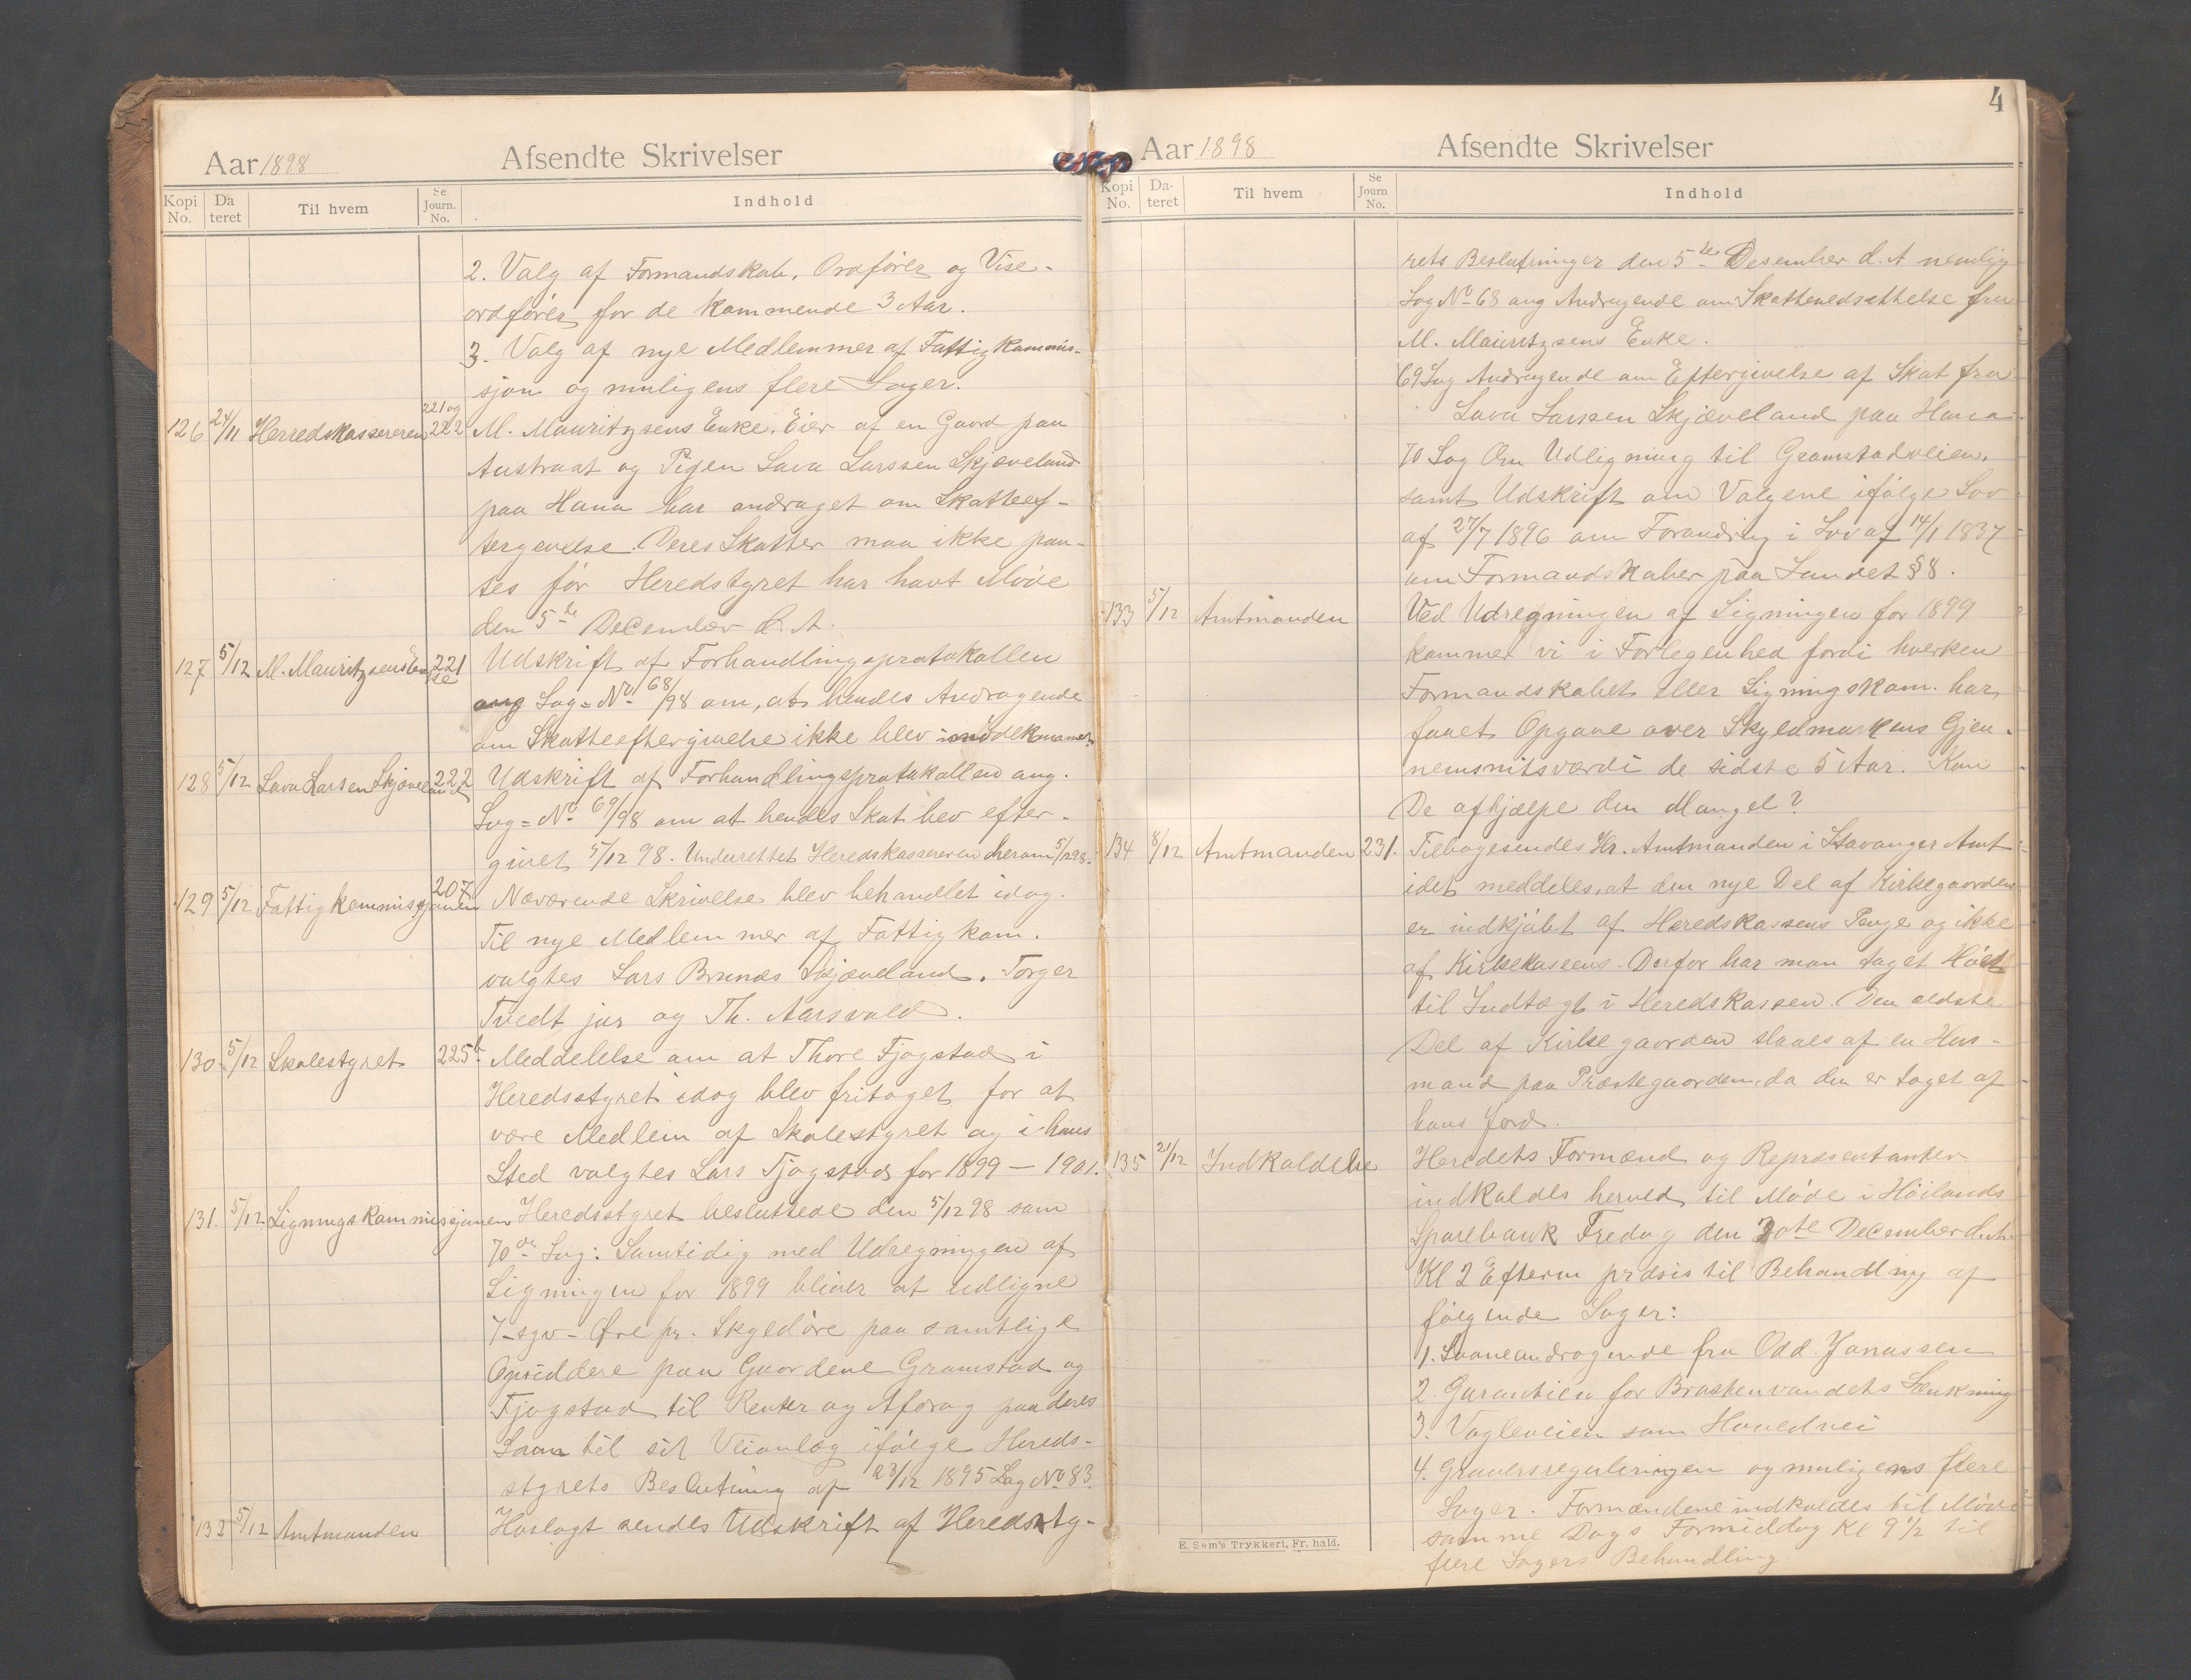 Aar 1898 Afsendte Skrivelser
Kopi No. Da teret Til hvem Se Journ. No. Indhold
2. Valg af Formandskab, Ordfører og Vise-
ordfører for de kommende 3 Aar.
3. Valg af nye Medlemmer af Fattigkommis-
sjon og muligens flere Sager.
126 24/11 Herredskassereren 221 og 222 M. Mauritzsens Enke, Eier af en Gaard paa
Austraat og Pigen Lava Larssen Skjæveland
paa Hana har andraget om Skatteef-
tergevelse. Deres Skatter maa ikke pan-
tes før Heredstyret har havt Møde
den 5te December d. A.
127 5/12 M. Mauritzsens Enke 221 Udskrift af Forhandlingsprotokollen
ang Sag = No 68/98 om, at hendes Andragende
om Skatteeftergivelse ikke blev imødekommet.
128 5/12 Lava Larsen Skjæveland 222 Udskrift af Forhandlingsprotokollen ang.
Sag = No 69/98 om at hendes Skat blev efter-
givet 5/12 98. Underrettet Heredskassereren herom 5/12 98.
129 5/12 Fattigkommissjonen 207 Nærværende Skrivelse blev behandlet idag.
Til nye Medlemmer af Fattigkom.
valgtes Lars Brunes Skjæveland, Torger
Tvedt jur og Th. Aarsvold.
130 5/12 Skolestyret 225b Meddelelse om at Thore Fjogstad i
Heredsstyret idag blev fritaget for at
være Medlem af Skolestyret og i hans
Sted valgtes Lars Fjogstad for 1899 – 1901.
131. 5/12 Ligningskommissjonen Heredsstyret besluttede den 5/12 98 som
70de Sag: Samtidig med Udregningen af
Ligningen for 1899 bliver at udligne
7 – syv – Øre pr. Skyldøre paa samtlige
Opsiddere paa Gaardene Gramstad og
Fjogstad til Renter og Afdrag paa deres
Laan til sit Veianlæg ifølge Hereds-
styrets Beslutning af 23/12 1895 Sag No 83.
132 5/12 Amtmanden Hoslagt sendes Udskrift af Heredsty-
4
Aar 1898 Afsendte Skrivelser
Kopi No. Da- teret Til hvem Se Journ No. Indhold
rets Beslutninger den 5te Desember d. A nemlig
Sag No 68 ang Andragende om Skattenedsettelse fra
M. Mauritzsens Enke.
69 Sag Andragende om Eftergivelse af Skat fra
Lava Larssen Skjæveland paa Hana
70 Sag Om Udligning til Gramstadveien.
samt Udskrift om Valgene ifølge Lov
af 27/7 1896 om Forandring i Lov af 14/1 1837
om Formandskaber paa Landet § 8.
133 5/12 Amtmanden Ved Udregningen af Ligningen for 1899
kommer vi i Forlegenhed fordi hverken
Formandskabet eller Ligningskom. har
faaet Opgave over Skyldmarkens Gjen-
nemsnitsværdi de sidste 5 Aar. Kan
De afhjælpe den Mangel?
134 8/12 Amtmanden 231. Tilbagesendes Hr. Amtmanden i Stavanger Amt
idet meddeles, at den nye Del af Kirkegaarden
er indkjøbt af Heredskassens Penge og ikke
af Kirkekassens. Derfor har man taget Høet
til Indtægt i Heredskassen. Den ældste
Del af Kirkegaarden slaaes af en Hus-
mand paa Præstegaarden, da den er taget af
hans Jord.
135 21/12 Indkaldelse Heredets Formænd og Repræsentanter
indkaldes herved til Møde i Høilands
Sparebank Fredag den 30te December d. A.
Kl 2 Efterm præsis til Behandling af
følgende Sager:
1. Laaneandragende fra Odd. Jonassen
2. Garantien for Brastenvandets Sænkning
3. Vagleveien som Hovedvei
4. Graversreguleringen og muligens flere
Sager. Formændene indkaldes til Møde
samme Dags Formiddag Kl 9 1/2 til
flere Sagers Behandling.
E. Sem's Trykkeri, Fr. hald.